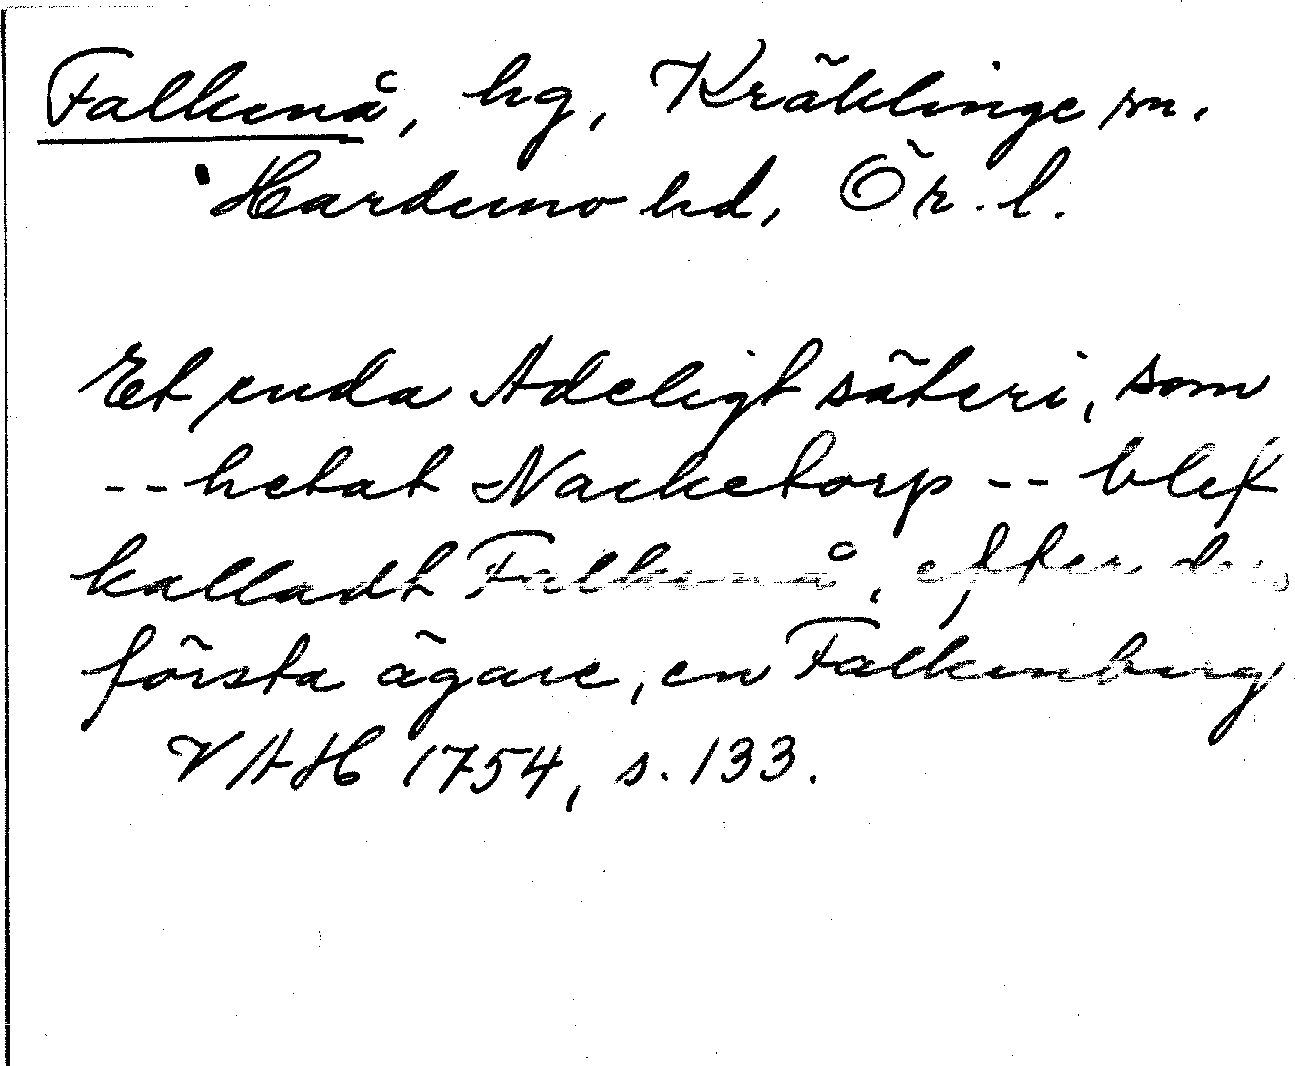 Falkenå, hg, Kräklinge sn.
Hardemo hd, Ör. l.
Et enda Adeligt säteri, som
-- hetat Nacketorp -- blef
kalladt Falkenå, efter des
första ägare, en Falkenberg
VAH 1754, s. 133.